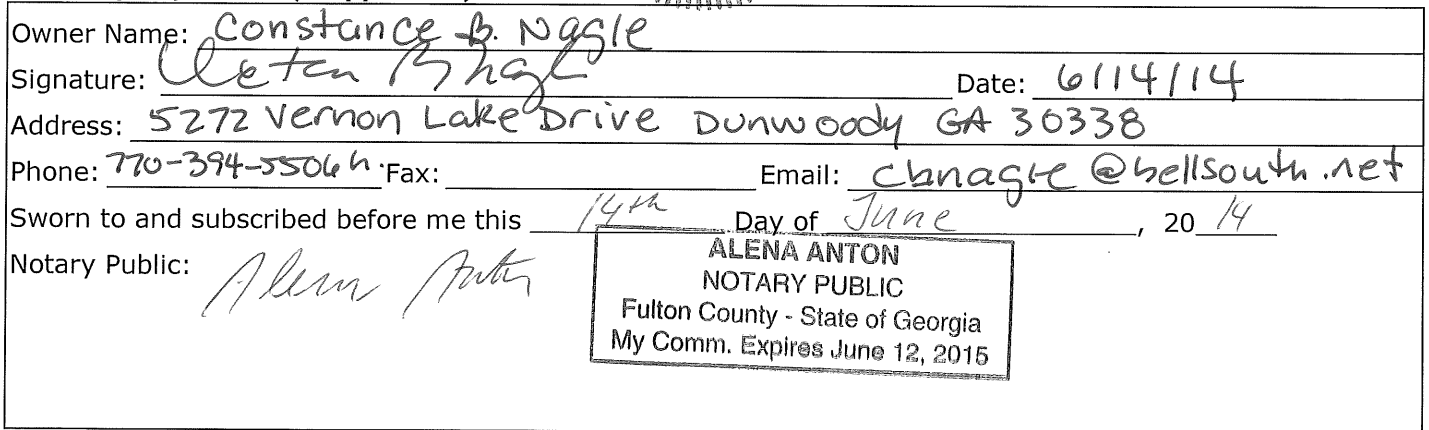 Owner Name: Constance B. Nagle
Signature:
Date: 6/14/14
Address: 5272 Vernon Lake Drive Dunwoody GA 30338
Phone: 770-394-5506 h. Fax: Email: cbnagle@bellsouth.net
Sworn to and subscribed before me this 14th Day of June, 20 14
Notary Public: Alena Anton
ALENA ANTON
NOTARY PUBLIC
Fulton County - State of Georgia
My Comm. Expires June 12, 2015